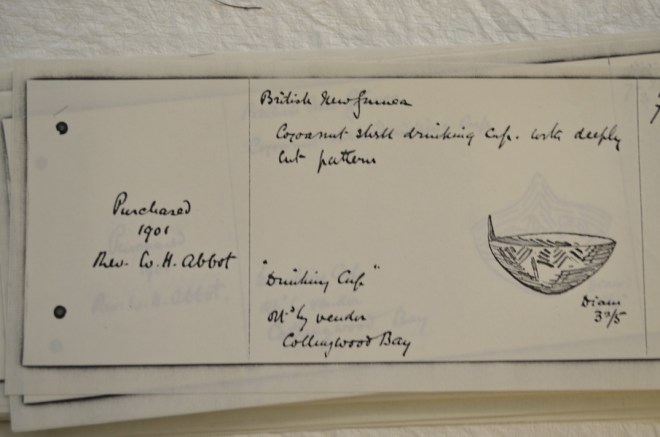 British New Guinea
Cocoanut shell drinking cup. with deeply
cut pattern
Purchased
1901
Rev. W. H. Abbot
"Drinking Cup"
by vendor
Collingwood Bay
Diam